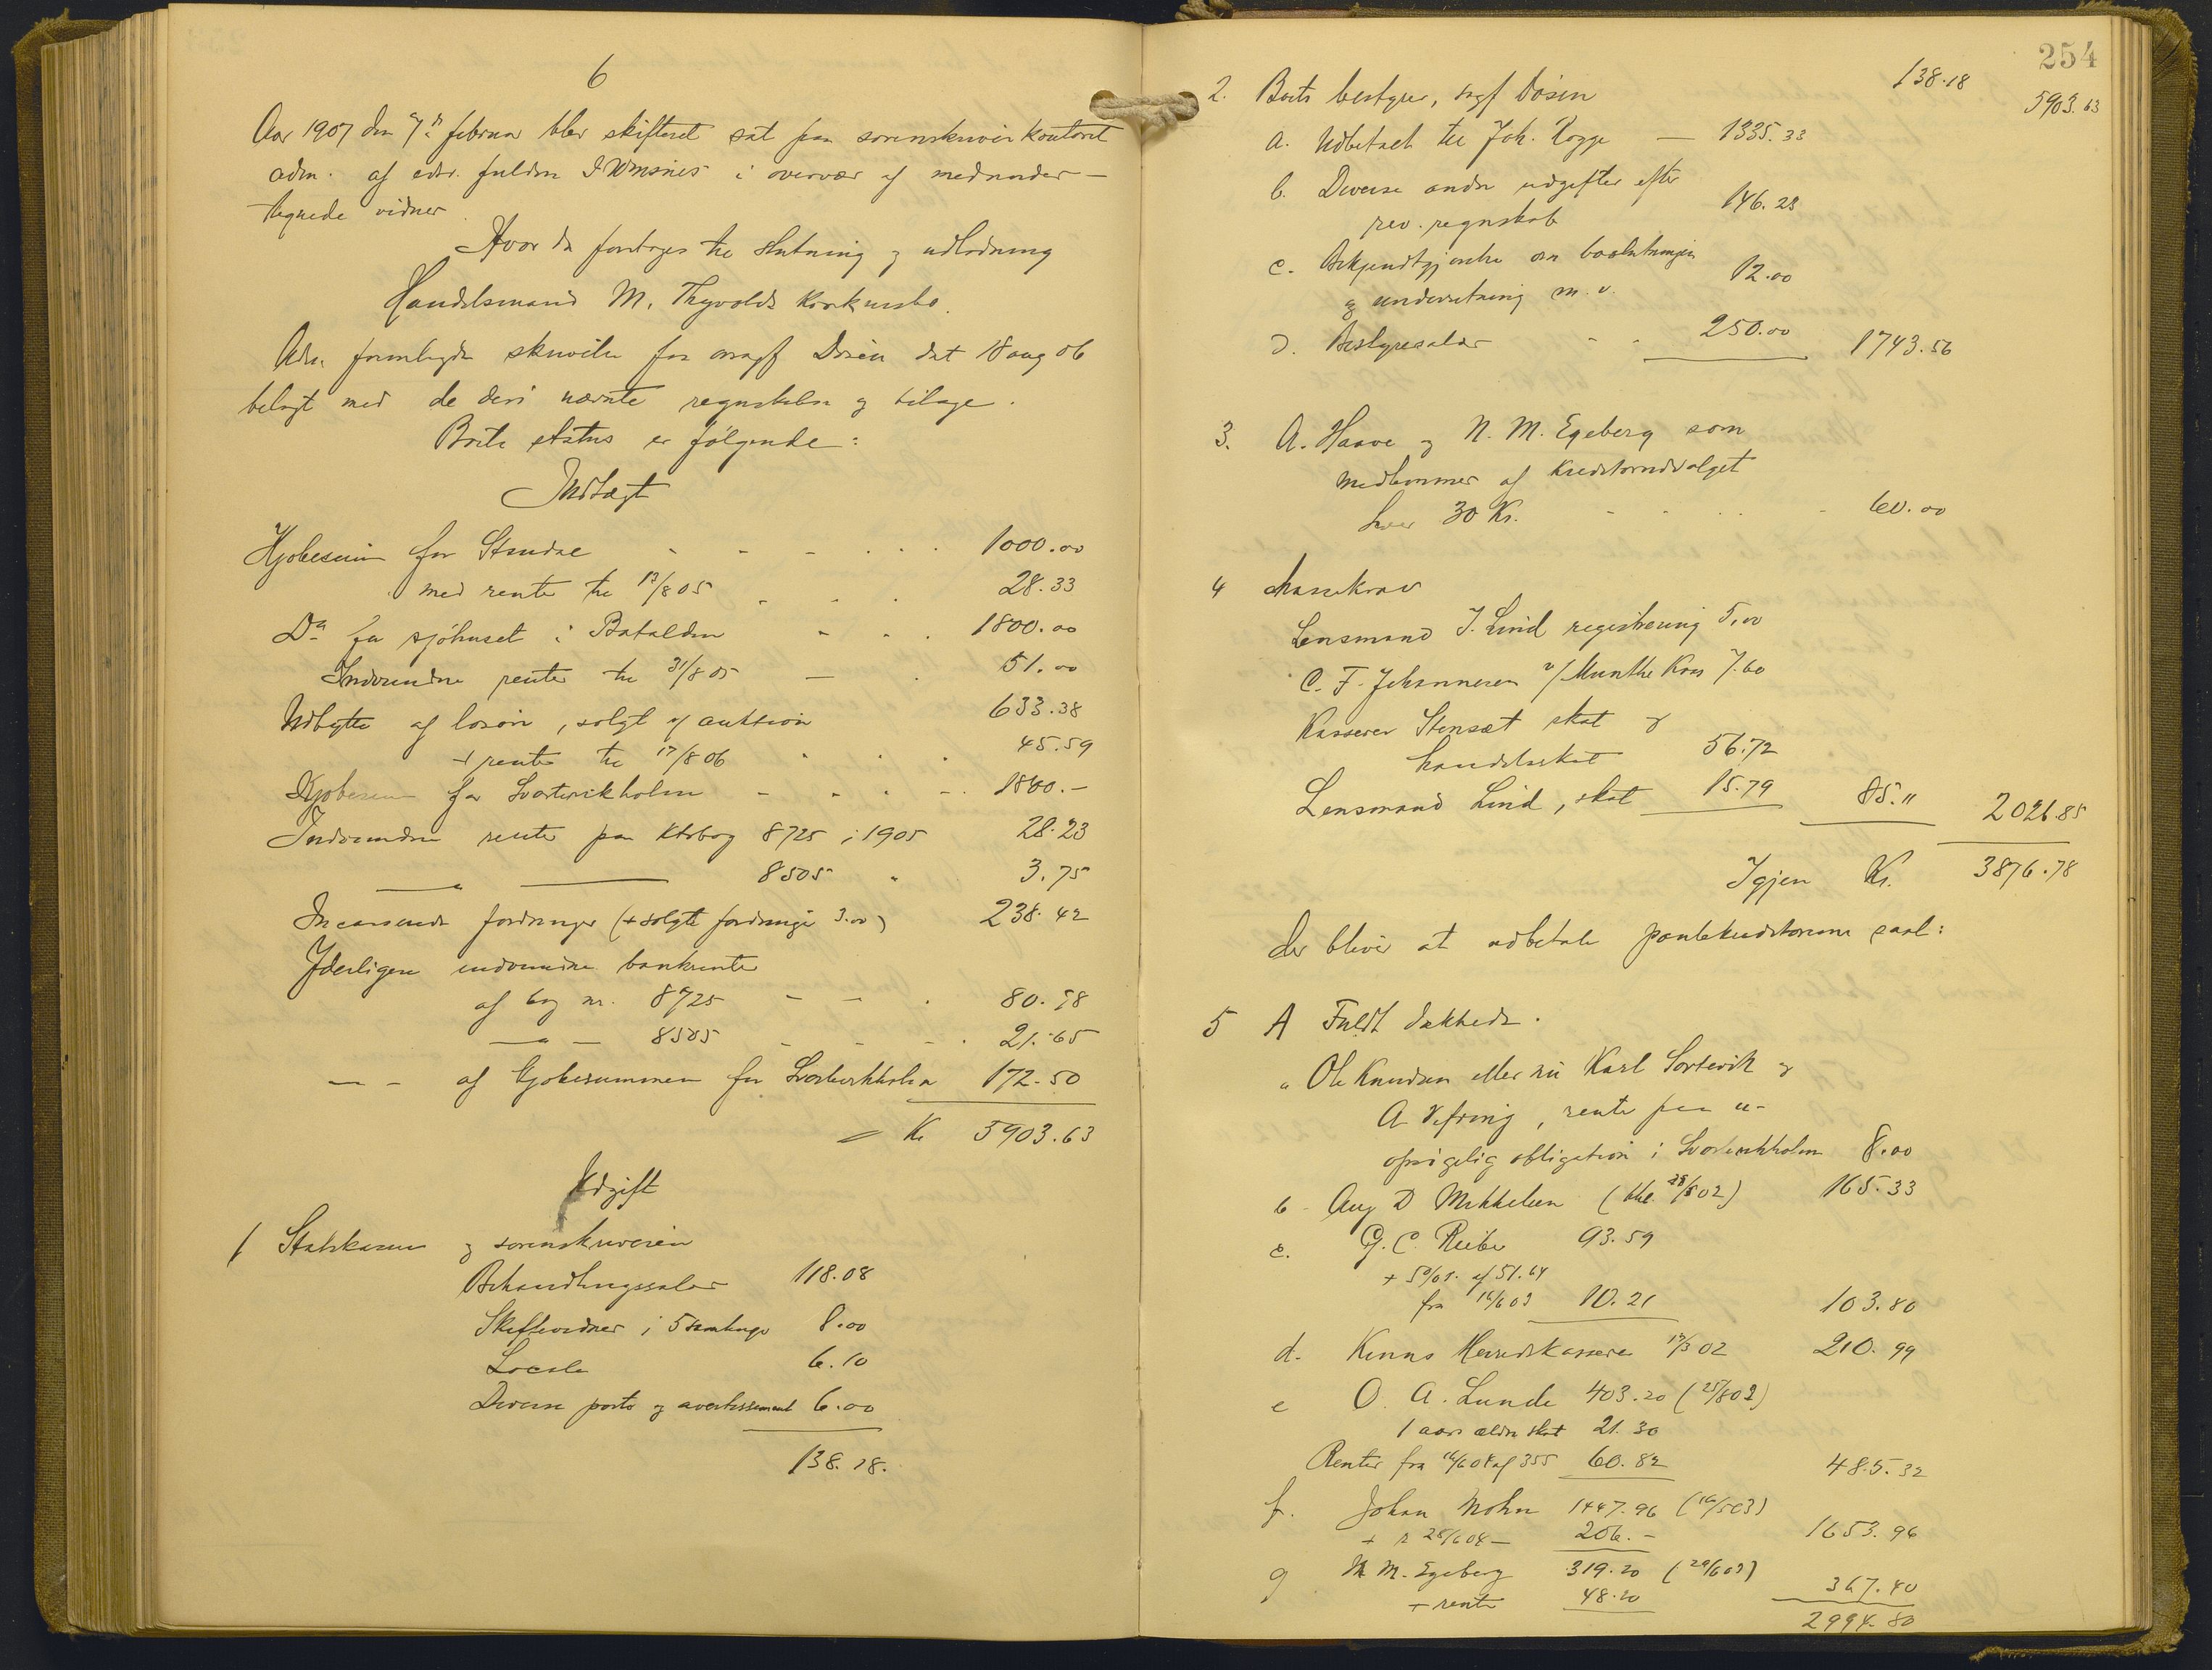 6
Aar 1907 den 7de februar blev skifteret sat paa sorenskriverkontoret
adm. af edsv. fuldm. i overvær af medunder-
tegnede vidner.
Hvor da foretoges til slutning og udlodning
Handelsmand M. Thyvolds konkursbo.
Adm. fremlagde skrivelse fra ovrsgf Døsen dat 18 aug 06
belagt med de deri nævnte regnskaber og bilage.
Boets status er følgende:
Indtægt
Kjøbesum for Stendal - - - . . . 1000.00
med rente til 17/8 05 - - . 28.33
Do for sjøhuset i Batalden - . . 1800.00
Indvundne renter til 31/8 05 — . 51.00
Udbytte af løsøre, solgt v/ auktion 633.38
+ renter til 17/8 06 . . . 45.59
Kjøbesum for Svortevikholm - - . -. 1800.-
Indvundne renter paa ktobog 8725 i 1905 28.23
—"— 8505 " 3.75
Incasserede fordringer (+ solgte fordringer 3.00) 238.42
Yderligere indvundne bankrenter
af bog nr. 8725 - - . 80.78
—"— 8505 - - -. 21.65
— - af kjøbesummen for Svortevikholm 172.50
= Kr 5903.63
Udgift
1 Statskassen og sorenskriveren
Behandlingssalær 118.08
Skiftevidner i 5 samlinger 8.00
Locale 6.10
Diverse porto og avertissement 6.00
138.18.
254
138.18
5903.63
2. Boets bestyrer, sagf Døsen
a. Udbetalt til Joh. Rogge — 1335.33
b. Diverse andre udgifter efter
rev. regnskab 146.23
c. Bekjendtgjørelse om boslutningen
og underretning m.v. 12.00
d. Bestyresalær - . 250.00 1743.56
3. A. Haave og N. M. Egeberg som
medlemmer af kreditorudvalget
hver 30 Kr. - - . . - 60.00
4 Massekrav
Lensmand J. Lind registrering 5,00
C. F. Johannesen v/ Munthe Kaas 7.60
Kasserer Stensæt skat og
handelsskat 56.72
Lensmand Lind, skat 15.79 85." 2026.85
Igjen Kr. 3876.78
der bliver at udbetale pantekreditorerne saal:
5 A Fuldt dækkede.
a Ole Knudsen eller nu Karl Sortevik og
A Vefring, rente paa u-
opsigelig obligation i Svortevikholm 8.00
b - Aug D Mikkelsen 165.33
c. G. C. Rieber 93.59
+ 5% r. af 51.64
fra 16/6 03 10.21 103.80
d. Kinns Herredskasserer 17/3 02 210.99
e O. A. Lunde 403.20 (25/8 02)
1 aars ældre skat 21.30
Renter fra 16/6 04 af 355 60.82 485.32
f. Johan Mohn 1447.96 (16/5 03)
+ r 25/6 04 - 206.- 1653.96
g N. M. Egeberg 319.20 (29/6 03)
+ rente 48.20 367.40
2994.80